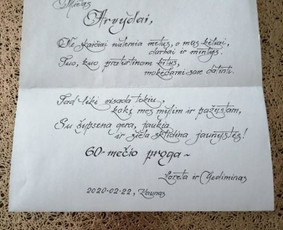 Mielas
Arvydai,
Ne skaičiai nulemia metus, o mus keičia,
darbai ir mintys.
Tuo, kuo praturtinam kitus,
mokėdami save dalinti.
Tad liki visada tokiu,
koks mes mylim ir pažįstam,
Su šypsena gera, jaukia
ir siela sklidina jaunystės!
60-mečio proga -
Loreta ir Gediminas
2020-02-22, Kaunas